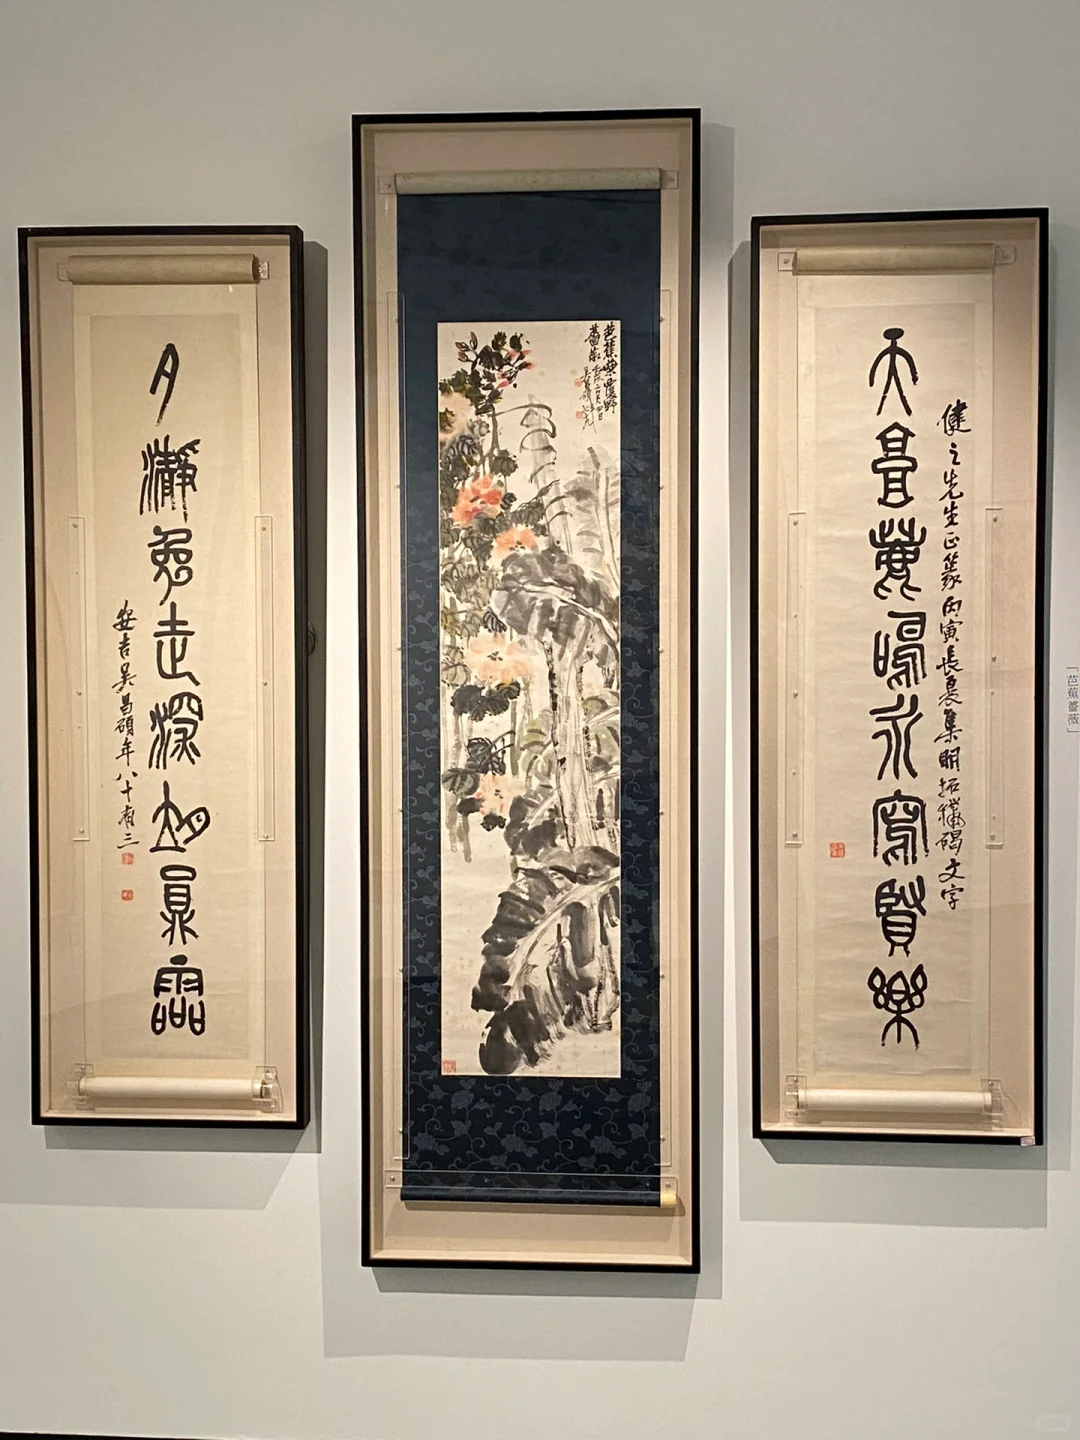 「芭蕉薔薇」
健之先生正篆丙寅長夏集明拓獵碣文字
天鳴永寫賢樂
芭蕉葉覆野
薔薇
夕瀞兔走深員霝
安吉吳昌碩年八十有三